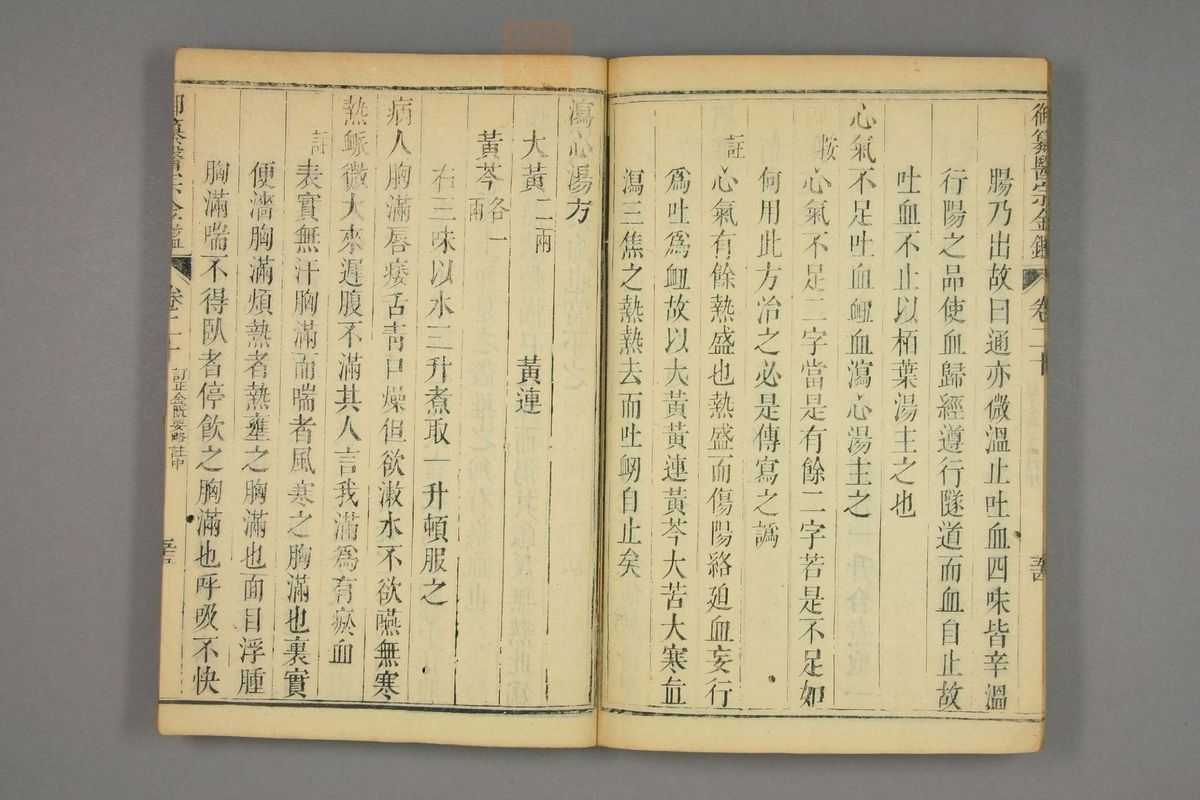 御纂醫宗金鑑 卷二十
腸乃出故曰通亦微溫止吐血四味皆辛溫
行陽之品使血歸經遵行隧道而血自止故
吐血不止以栢葉湯主之也
心氣不足吐血衄血瀉心湯主之
按 心氣不足二字當是有餘二字若是不足如
何用此方治之必是傳寫之譌
註 心氣有餘熱盛也熱盛而傷陽絡廹血妄行
爲吐爲衄故以大黃黃連黃芩大苦大寒直
瀉三焦之熱熱去而吐衄自止矣
瀉心湯方
大黃二兩 黃連
黃芩各一兩
右三味以水三升煮取一升頓服之
病人胸滿唇痿舌靑口燥但欲漱水不欲嚥無寒
熱脈微大來遲腹不滿其人言我滿爲有瘀血
註 表實無汗胸滿而喘者風寒之胸滿也裏實
便濇胸滿煩熱者熱壅之胸滿也面目浮腫
胸滿喘不得臥者停飮之胸滿也呼吸不快
御纂醫宗金鑑 卷二十 訂正金匱要略註中